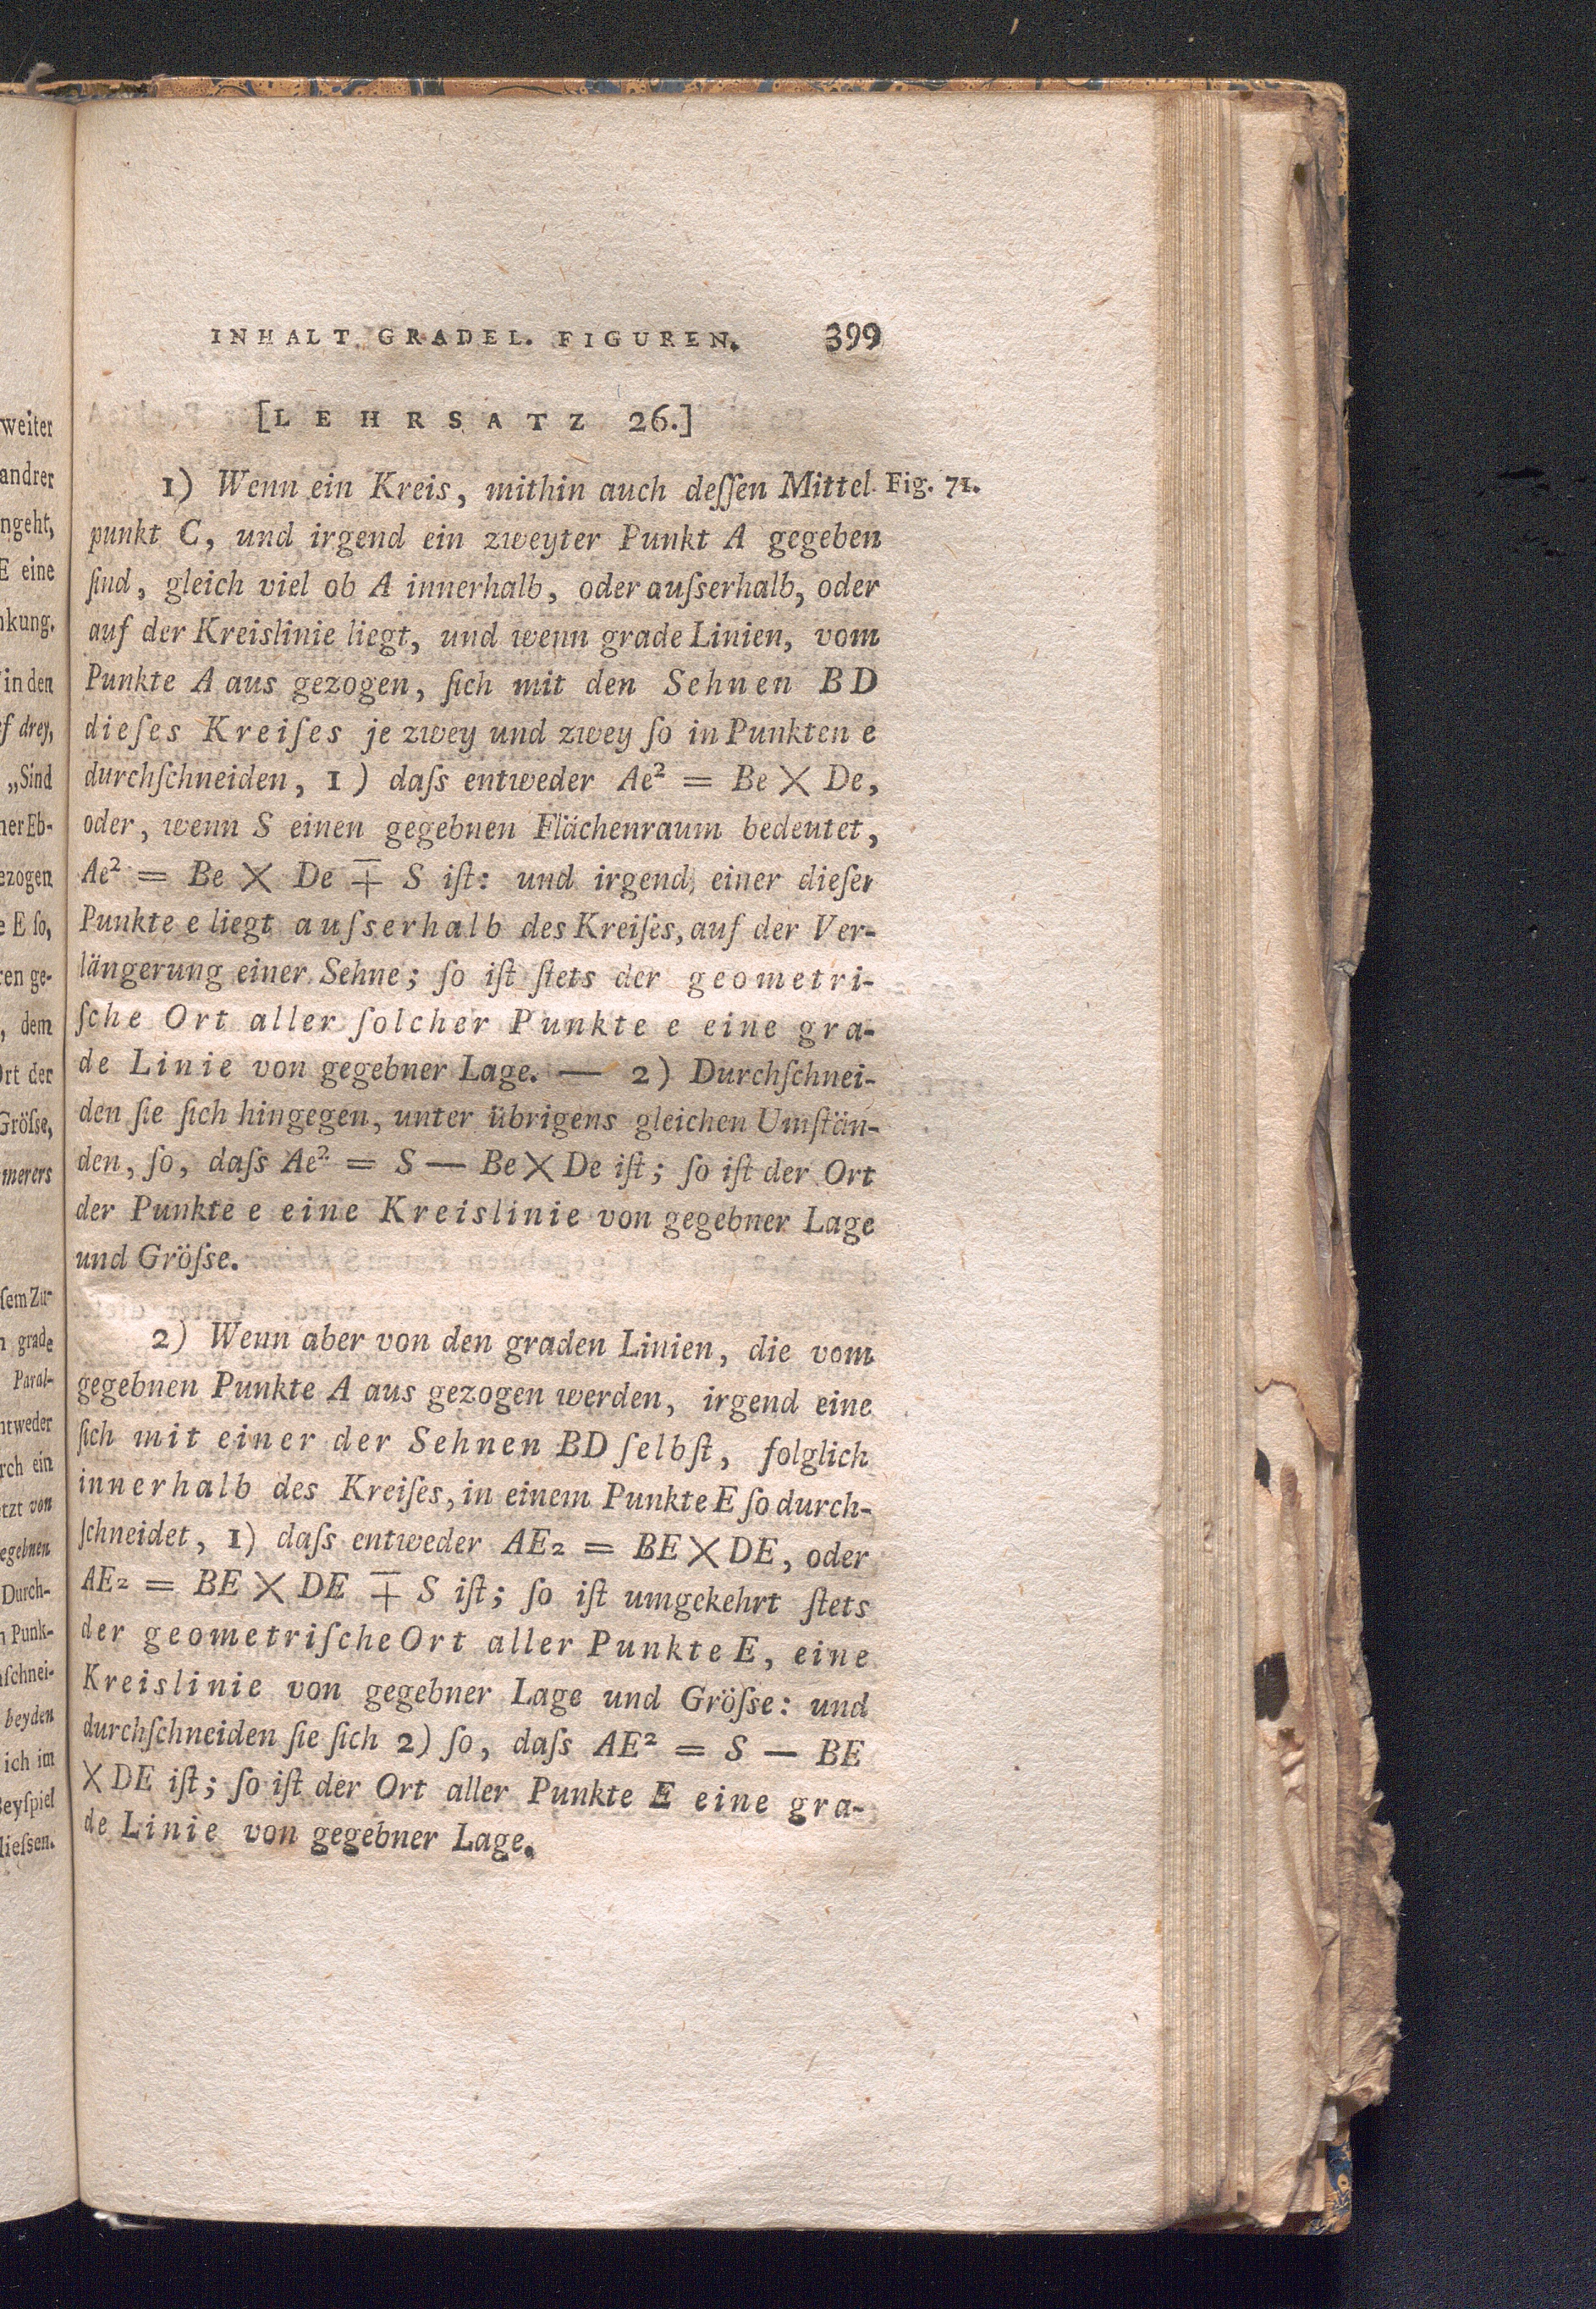 INHALT GRADEL. FIGUREN. 399
[LEHRSATZ 26.]
1) Wenn ein Kreis, mithin auch deſſen Mittel- Fig. 71.
punkt C, und irgend ein zweyter Punkt A gegeben
ſind, gleich viel ob A innerhalb, oder auſserhalb, oder
auf der Kreislinie liegt, und wenn grade Linien, vom
Punkte A aus gezogen, ſich mit den Sehnen BD
dieſes Kreiſes je zwey und zwey ſo in Punkten e
durchſchneiden, 1) daſs entweder Ae² = Be × De,
oder, wenn S einen gegebnen Flächenraum bedeutet,
Ae² = Be × De ∓ S iſt: und irgend einer dieſer
Punkte e liegt auſserhalb des Kreiſes, auf der Ver-
längerung einer Sehne; ſo iſt ſtets der geometri-
ſche Ort aller ſolcher Punkte e eine gra-
de Linie von gegebner Lage. — 2) Durchſchnei-
den ſie ſich hingegen, unter übrigens gleichen Umſtän-
den, ſo, daſs Ae² = S — Be × De iſt; ſo iſt der Ort
der Punkte e eine Kreislinie von gegebner Lage
und Gröſse.
2) Wenn aber von den graden Linien, die vom
gegebnen Punkte A aus gezogen werden, irgend eine
ſich mit einer der Sehnen BD ſelbſt, folglich
innerhalb des Kreiſes, in einem Punkte E ſo durch-
ſchneidet, 1) daſs entweder AE2 = BE × DE, oder
AE2 = BE × DE ∓ S iſt; ſo iſt umgekehrt ſtets
der geometriſche Ort aller Punkte E, eine
Kreislinie von gegebner Lage und Gröſse: und
durchſchneiden ſie ſich 2) ſo, daſs AE² = S — BE
× DE iſt; ſo iſt der Ort aller Punkte E eine gra-
de Linie von gegebner Lage.